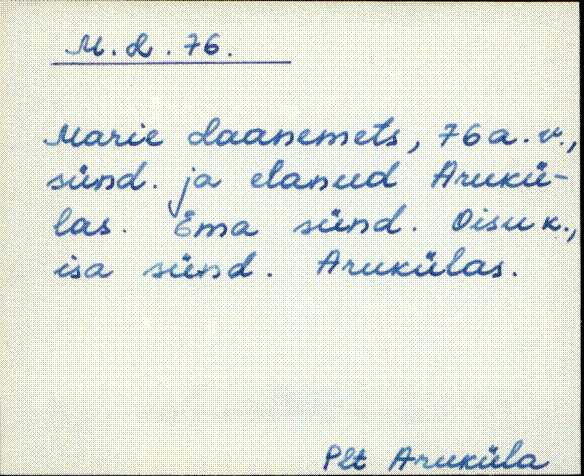 M. L. 76.
Marie Laanemets, 76 a. v.,
sünd. ja elanud Arukü-
las. Ema sünd. Oisu k.,
isa sünd. Arukülas.
Plt Aruküla